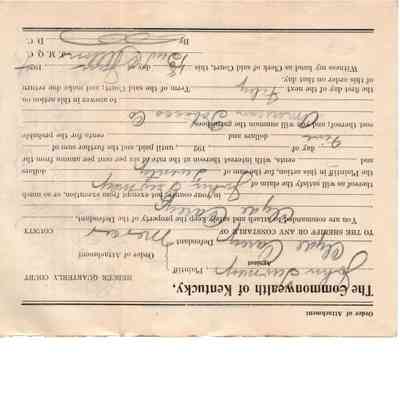 Order of Attachment
The Commonwealth of Kentucky,
John Turney, Plaintiff, MERCER QUARTERLY COURT
Against
Clyde Carey Defendant Order of Attachment
TO THE SHERIFF OR ANY CONSTABLE OF Mercer COUNTY
You are commanded to Attach and safely keep the property of the Defendant,
Clyde Carey
in your county not exempt from execution, or so much
thereof as will satisfy the claim of John Turney
the Plaintiff in this action for the sum of Twenty
and cents, with interest thereon at the rate of six per cent per annum from the
day of 192 , until paid and the further sum of
Five dollars and cents the probable
cost thereof; and you will summon the garnishee
American Tobacco Co
to answer in this action on
the first day of the next July Term of said Court, and make due return
of this order on that day.
Witness my hand as Clerk of said Court, this day 192
C. M. Q. C.
By D. C.